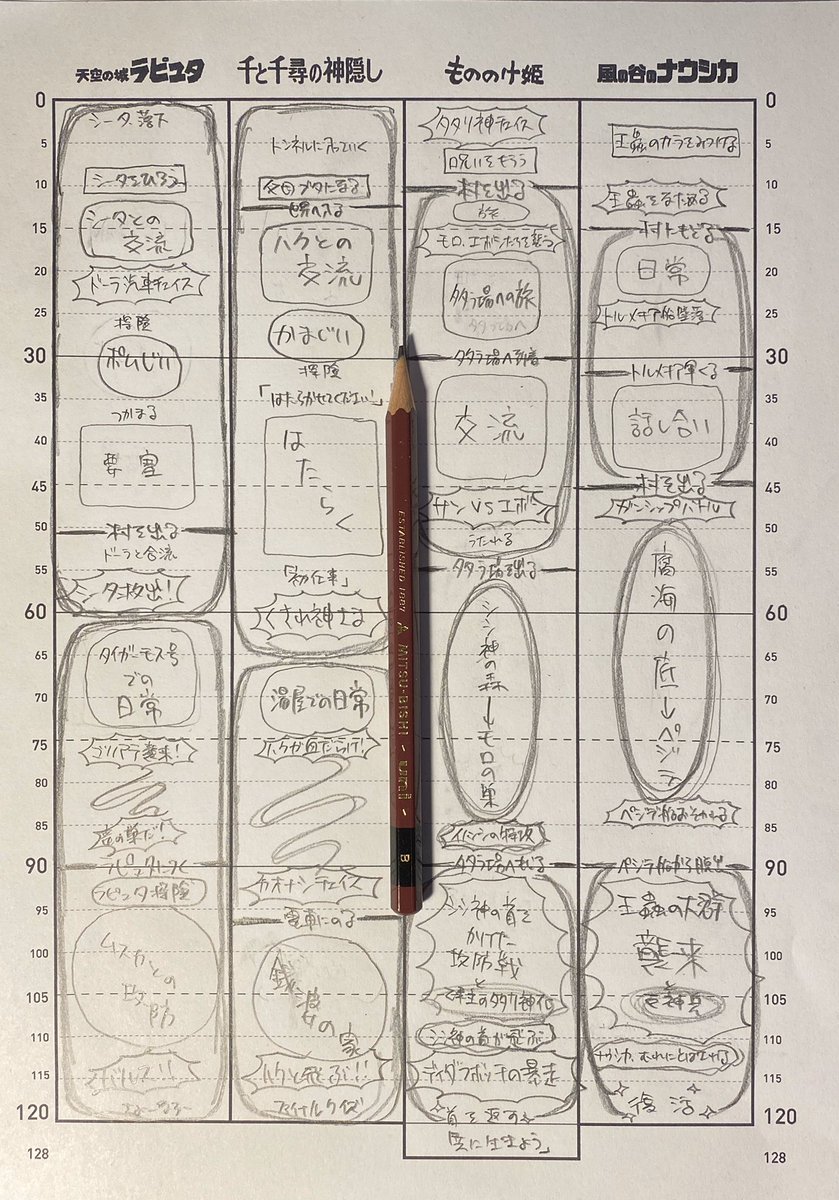 天空の城ラピュタ
千と千尋の神隠し
もののけ姫
風の谷のナウシカ
0
5
10
15
20
25
30
35
40
45
50
55
60
65
70
75
80
85
90
95
100
105
110
115
120
128
シータ落下
シータをひろう
シータとの
交流
ドーラ汽車チェイス
探険
ポムじい
つかまる
要塞
村を出る
ドーラと合流
シータ救出!
タイガーモス号
での
日常
ゴリアテ襲来!
竜の巣だ!
ラピュタにつく
ラピュタ探険
ムスカとの
攻防
バルス!!
トンネルに入っていく
父母ブタになる
ハクとの
交流
かまじい
探険
「はたらかせてください!」
はたらく
「初仕事」
くされ神さま
湯屋での日常
ハクが血だらけ!
カオナシチェイス
電車にのる
銭婆の家
ハクと飛ぶ!!
ファイナルクイズ
タタリ神チェイス
呪いをもらう
村を出る
旅
モロ、エボシたちを襲う
タタラ場への旅
タタラ場へ到着
交流
サンVSエボシ
うたれる
タタラ場を出る
シシ神の森→モロの巣
イノシシの特攻
タタラ場へもどる
シシ神の首を
かけた
攻防戦
と
乙事主のタタリ神化
シシ神の首が飛ぶ
ディダラボッチの暴走
首を返す
共に生きよう」
王蟲のカラをみつける
王蟲をなだめる
村へもどる
日常
トルメキア船墜落
トルメキア軍くる
話し合い
村を出る
ガンシップバトル
腐海の底→ペジテ
ペジテ船おそわれる
ペジテ船から脱出
王蟲の大群
襲来
と
巨神兵
ナウシカ、むれにとばされる
復活
0
5
10
15
20
25
30
35
40
45
50
55
60
65
70
75
80
85
90
95
100
105
110
115
120
128
ESTABLISHED 1887
MITSU-BISHI
uni
B